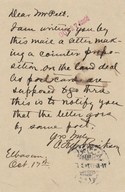 Dear Mr Pell.
I am writing you by
this mail a letter mak
ing a counter propo-
sition on the land deal
as post card are
supposed to
this is to notify you
that the letter goes
by same post.
Yrs truly
Oct 17th